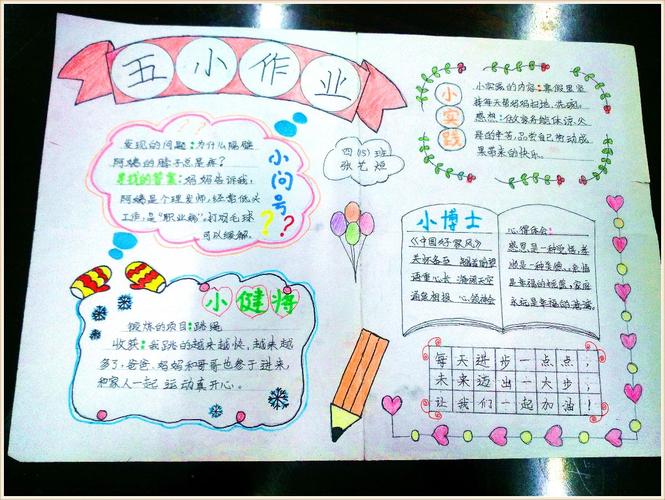 五小作业
小问号
发现的问题:为什么隔壁
阿姨的脖子总是疼?
寻找的答案:妈妈告诉我,
阿姨是个理发师,经常低头
工作,是“职业病”。打羽毛球
可以缓解。
??
四(15)班
张艺烜
小实践
小实践的内容:寒假里坚
持每天帮妈妈扫地、洗碗。
感想:做家务能体谅父
母的辛苦,品尝自己劳动成
果带来的快乐。
小健将
锻炼的项目:跳绳
收获:我跳的越来越快,越来越
多了,爸爸、妈妈和哥哥也参于进来,
和家人一起运动真开心。
小博士
《中国好家风》
关怀备至
语重心长
心领神会
心得体会:
感恩是一种
顺是一种美德,
是幸福的
永远是幸福的港湾。
每天进步一点点,
未来迈出一大步,
让我们一起加油!